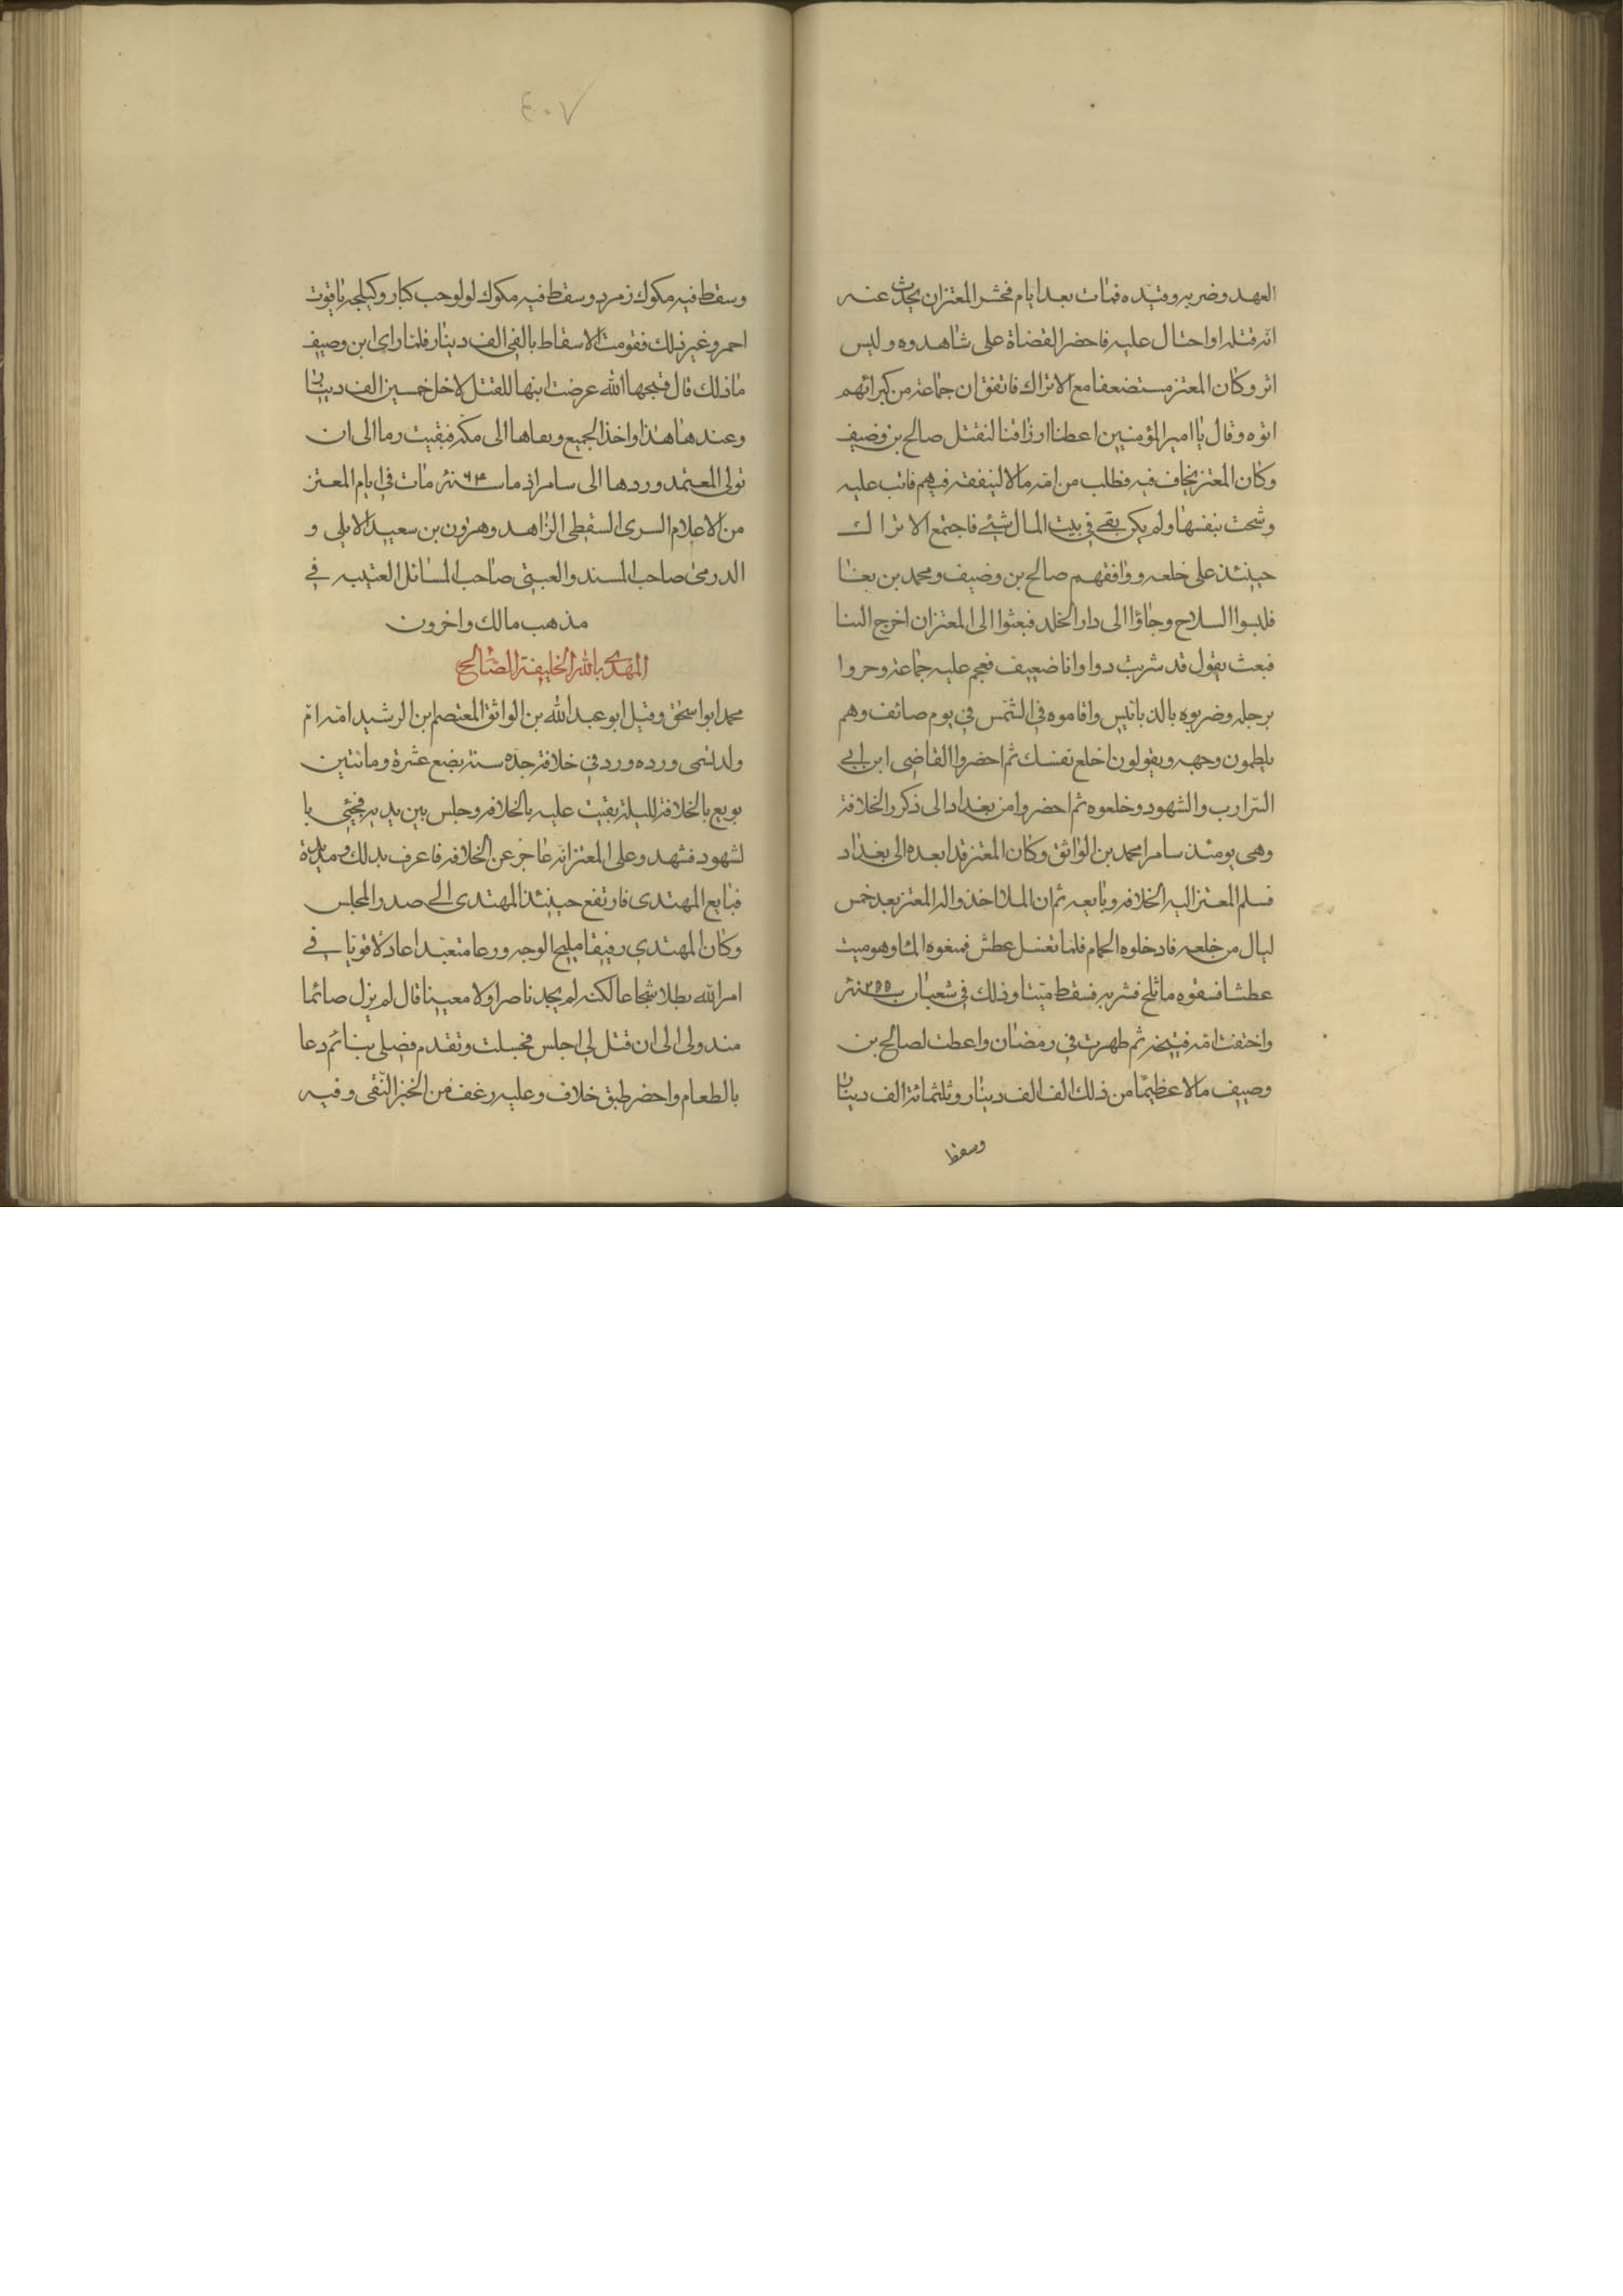 العهد وضربه وقيده فمات بعد ايام فخشر المعتز ان يحدث عنه
انه قتله او احتال عليه فاحضر القضاة على شاهدوه وليس
اثر وكان المعتز مستضعفا مع الاتراك فاتفق ان جماعة من كبرائهم
اتوه وقال يا امير المؤمنين اعطنا ارزاقنا لنقتل صالح بن وضيف
وكان المعتز يخاف فيه فطلب من امه مالا لينفقه فيهم فاتب عليه
وشحت بنفسها ولم يكن بقي في بيت المال شيئ فاجتمع الاتراك
حينئذ على خلعه ووافقهم صالح بن وضيف ومحمد بن بغا
فلبسوا السلاح وجاؤا الى دار الخلد فبعثوا الى المعتز ان اخرج الينا
فبعث يقول قد شربت دوا وانا ضعيف فهجم عليه جماعة وجروا
برجله وضربوه بالدبابيس واقاموه في الشمس في يوم صائف وهم
يلطمون وجهه ويقولون اخلع نفسك ثم احضروا القاضي ابن ابي
الترارب والشهود وخلعوه ثم احضروا من بغداد الى ذكر الخلافة
وهي يومئذ سامرا محمد بن الواثق وكان المعتز قد ابعده الى بغداد
فسلم المعتز اليه الخلافه وبايعه ثم ان الملا اخذوا له المعتز بعد خمس
ليال من خلعه فادخلوه الحمام فلما تغسل عطش فمنعوه الماء وهو ميت
عطشا فسقوه ما ثلج فشربه فسقط ميتا وذلك في شعبان سنة ٢٥٥
واختفت امه قبيحه ثم طهرت في رمضان واعطت لصالح بن
وصيف مالا عظيما من ذلك الف الف دينار وثلثمائة الف دينار
وسقط
٤٠٧
وسقط فيه مكوك زمرد وسقط فيه مكوك لولو حب كبار وكيلجه ياقوت
احمر وغير ذلك فقومت الاسقاط بالفي الف دينار فلما راى ابن وصيف
ما ذلك قال قبحها الله عرضت ابنها للقتل لاجل خمسين الف دينار
وعندها هذا واخذ الجميع وبعاها الى مكه فبقيت رما الى ان
تولى المعتمد وردها الى سامرا فماست سنة ٦٤ مات في ايام المعتز
من الاعلام السرى السقطى الزاهد وهرون بن سعيد الايلي و
الدرمى صاحب المسند والعبتي صاحب المسائل العتيبه في
مذهب مالك واخرون
المهدى بالله الخليفة الصالح
محمد ابو اسحق وقيل ابو عبد الله بن الواثق المعتصم ابن الرشيد امه ام
ولد تسمى ورده ورد في خلافة جده سنة بضع عشرة ومائتين
بويع بالخلافة لليلة بقيت عليه بالخلافه وجلس بين يديه فجيئ با
لشهود فشهد وعلى المعتز انه عاجز عن الخلافه فاعرف بذلك ومد يده
فبايع المهتدى فارتفع حينئذ المهتدى الى صدر المجلس
وكان المهتدي رفيقا مليح الوجه ورعا متعبدا عادلا قويا في
امر الله بطلا شجاعا لكنه لم يجد ناصرا ولا معينا قال لم يزل صائما
منذ ولى الى ان قتل لي اجلس فجسلت وتقدم فصلى بنا ثم دعا
بالطعام واحضر طبق خلاف وعليه رغف من الخبز النقى وفيه